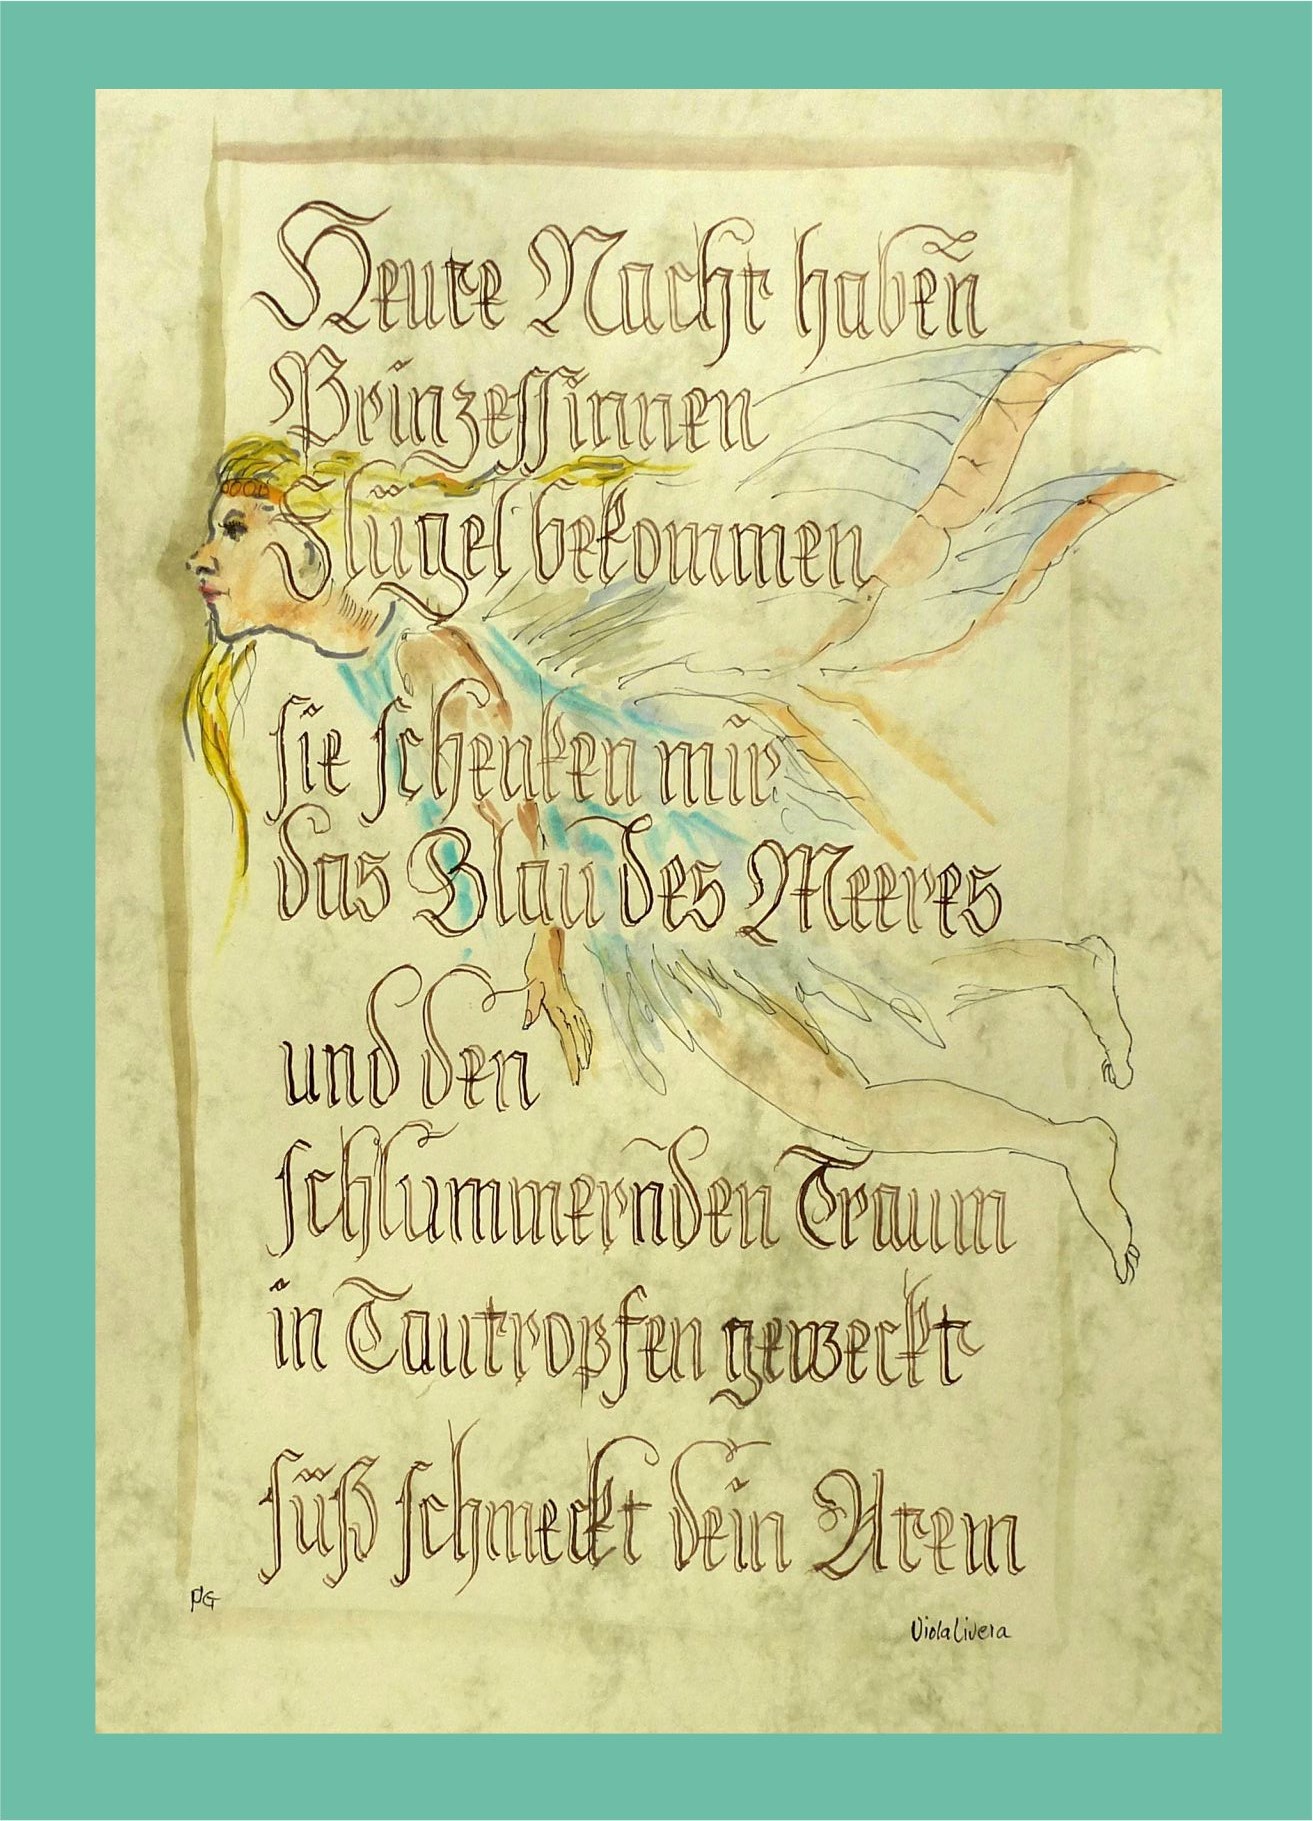 Heute Nacht haben
Prinzessinnen
Flügel bekommen
sie schenken mir
das Blau des Meeres
und den
schlummernden Traum
in Tautropfen geweckt
süß schmeckt dein Atem
PG
Viola Livera